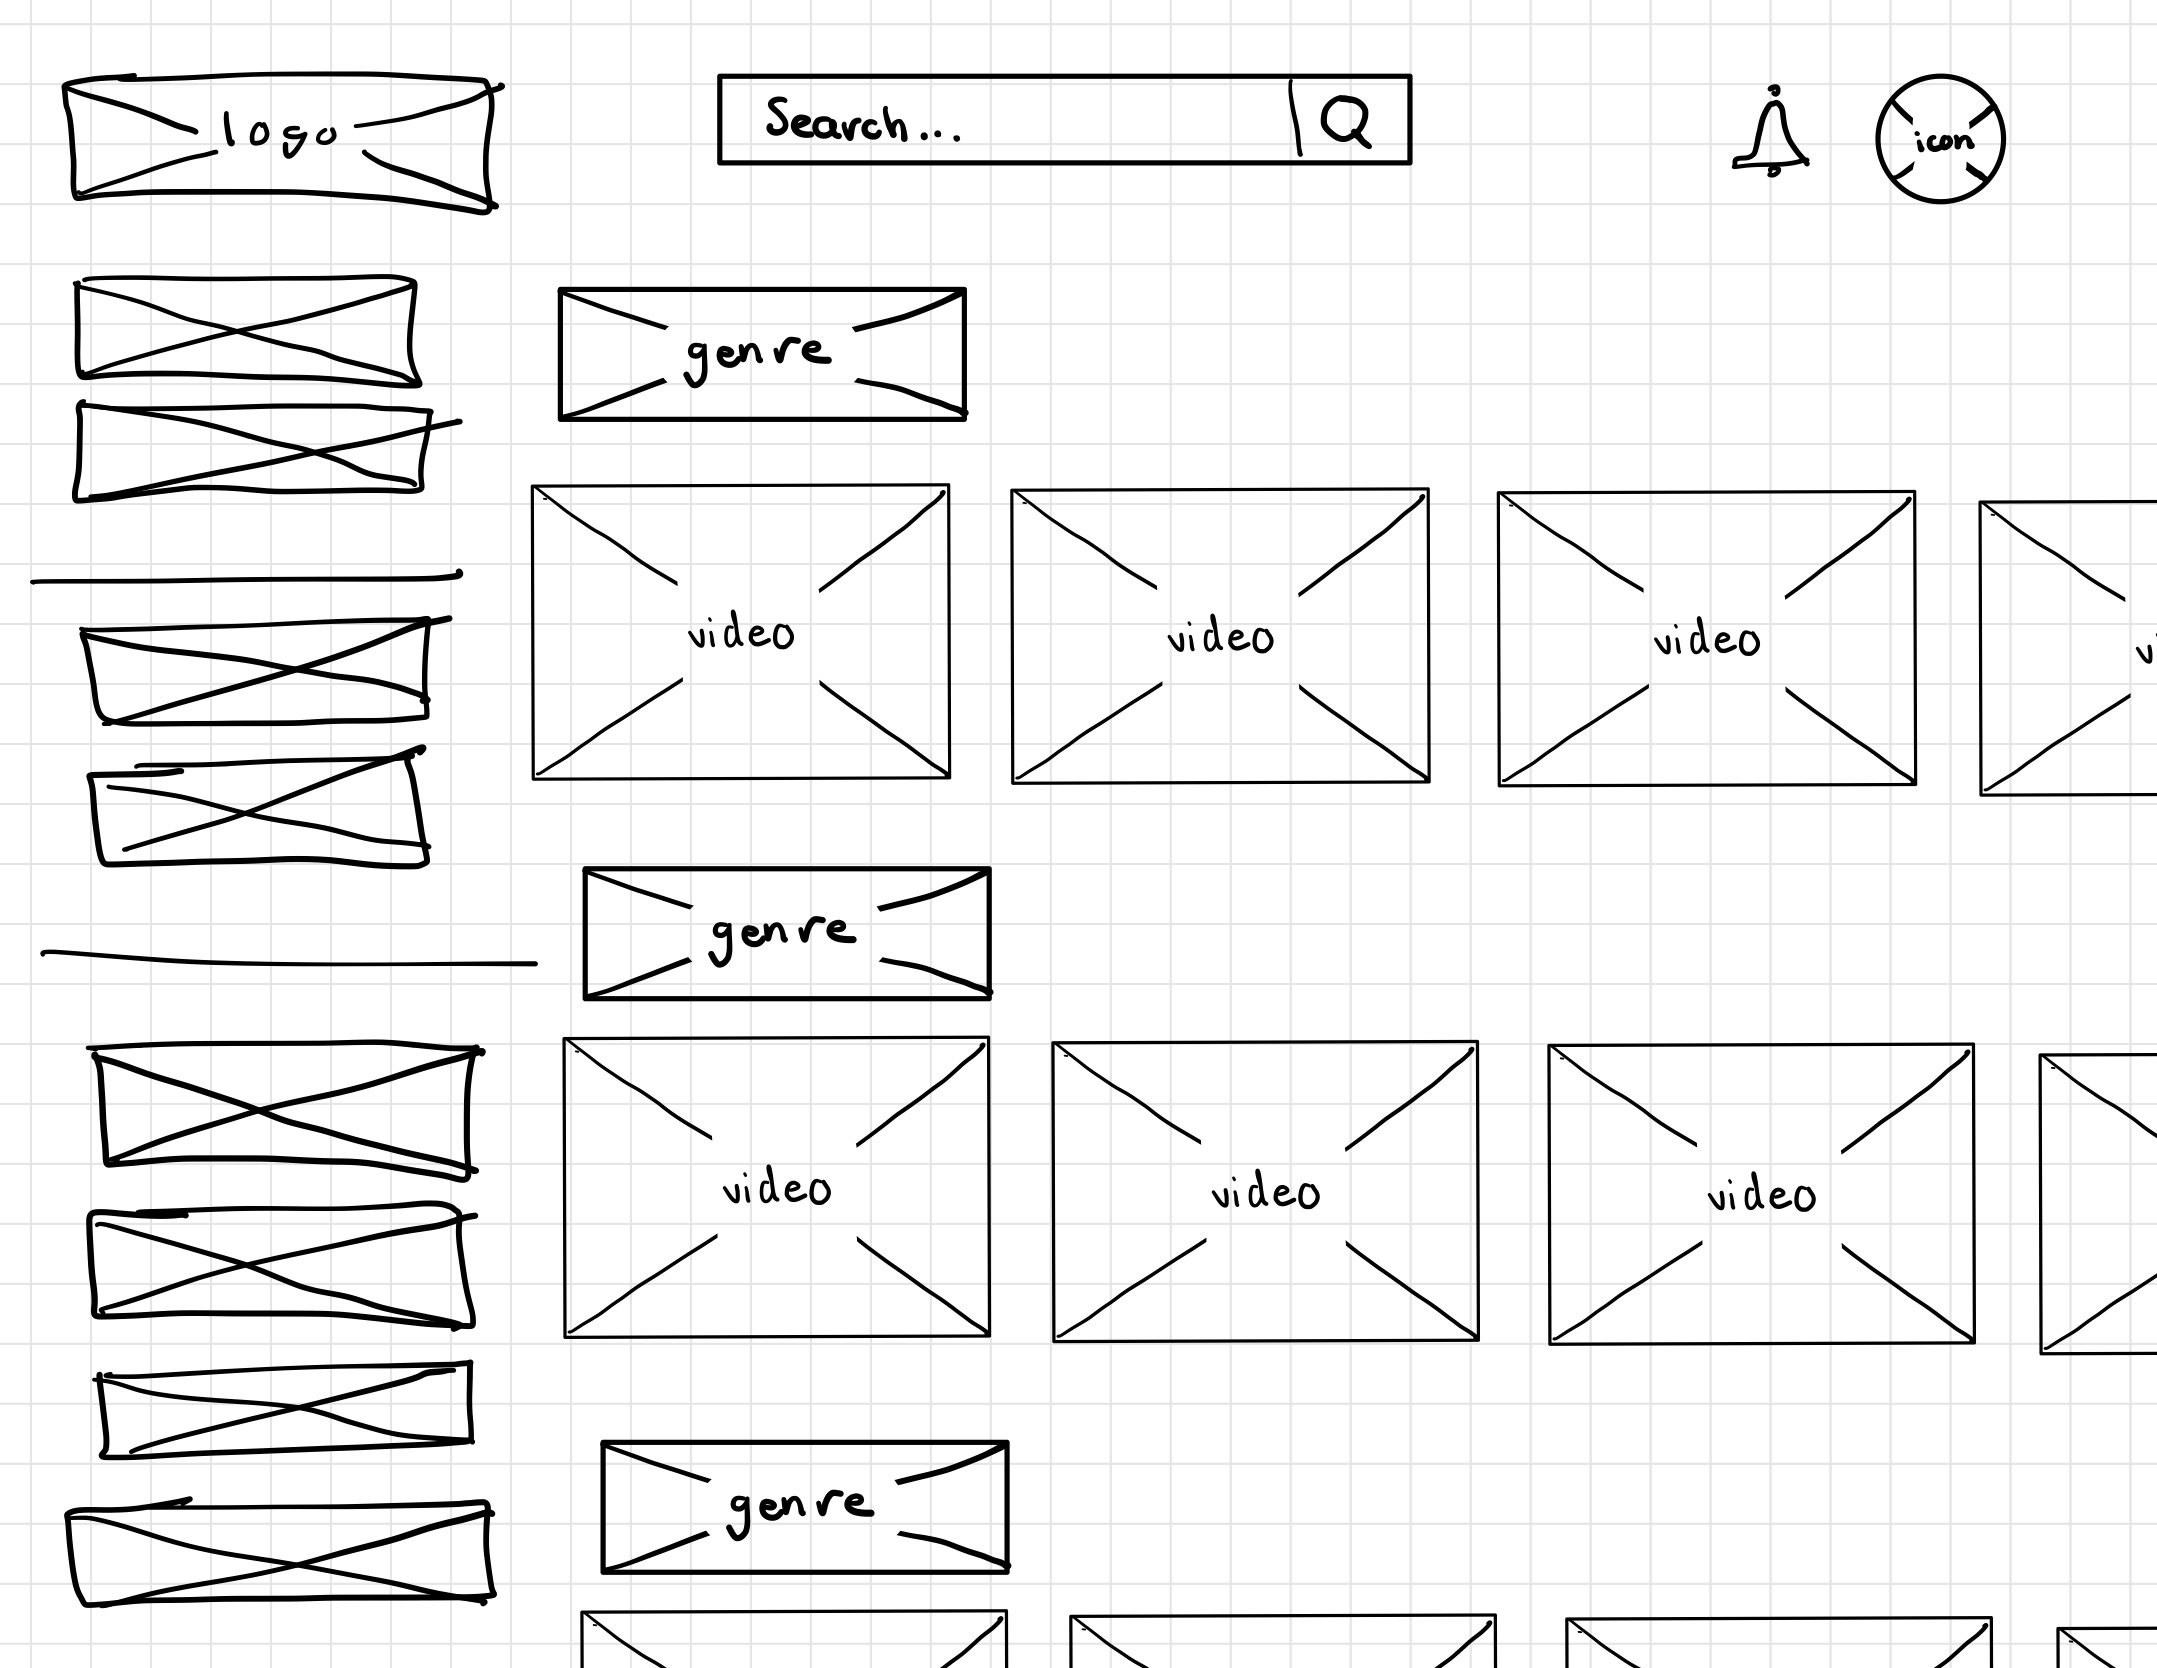 logo
Search...
icon
genre
video video video vi
genre
video video video
genre